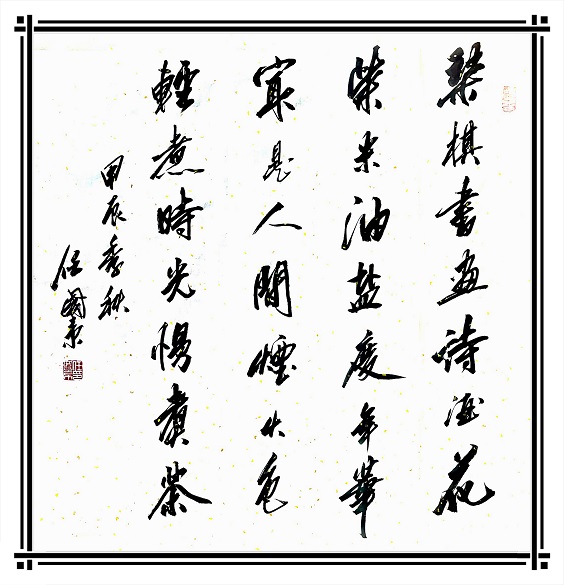 琴棋書画詩酒花
柴米油盐度年華
最是人間煙火色
輕煮時光慢煮茶
甲辰季秋
任國東